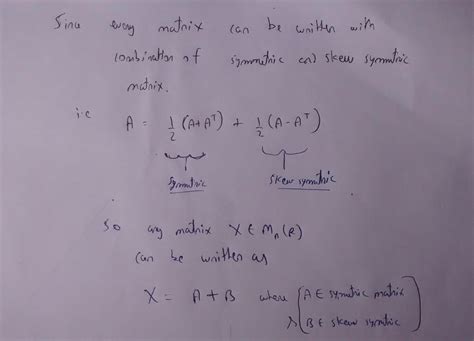 Since every matrix can be written with
combination of symmetric and skew symmetric
matrix.
i.e A = 1/2 (A+Aᵀ) + 1/2 (A-Aᵀ)
Symmtric skew symmtric
so any matrix X ∈ Mn(R)
can be written as
X = A + B where (A ∈ symtric matrix
& B ∈ skew symtric)